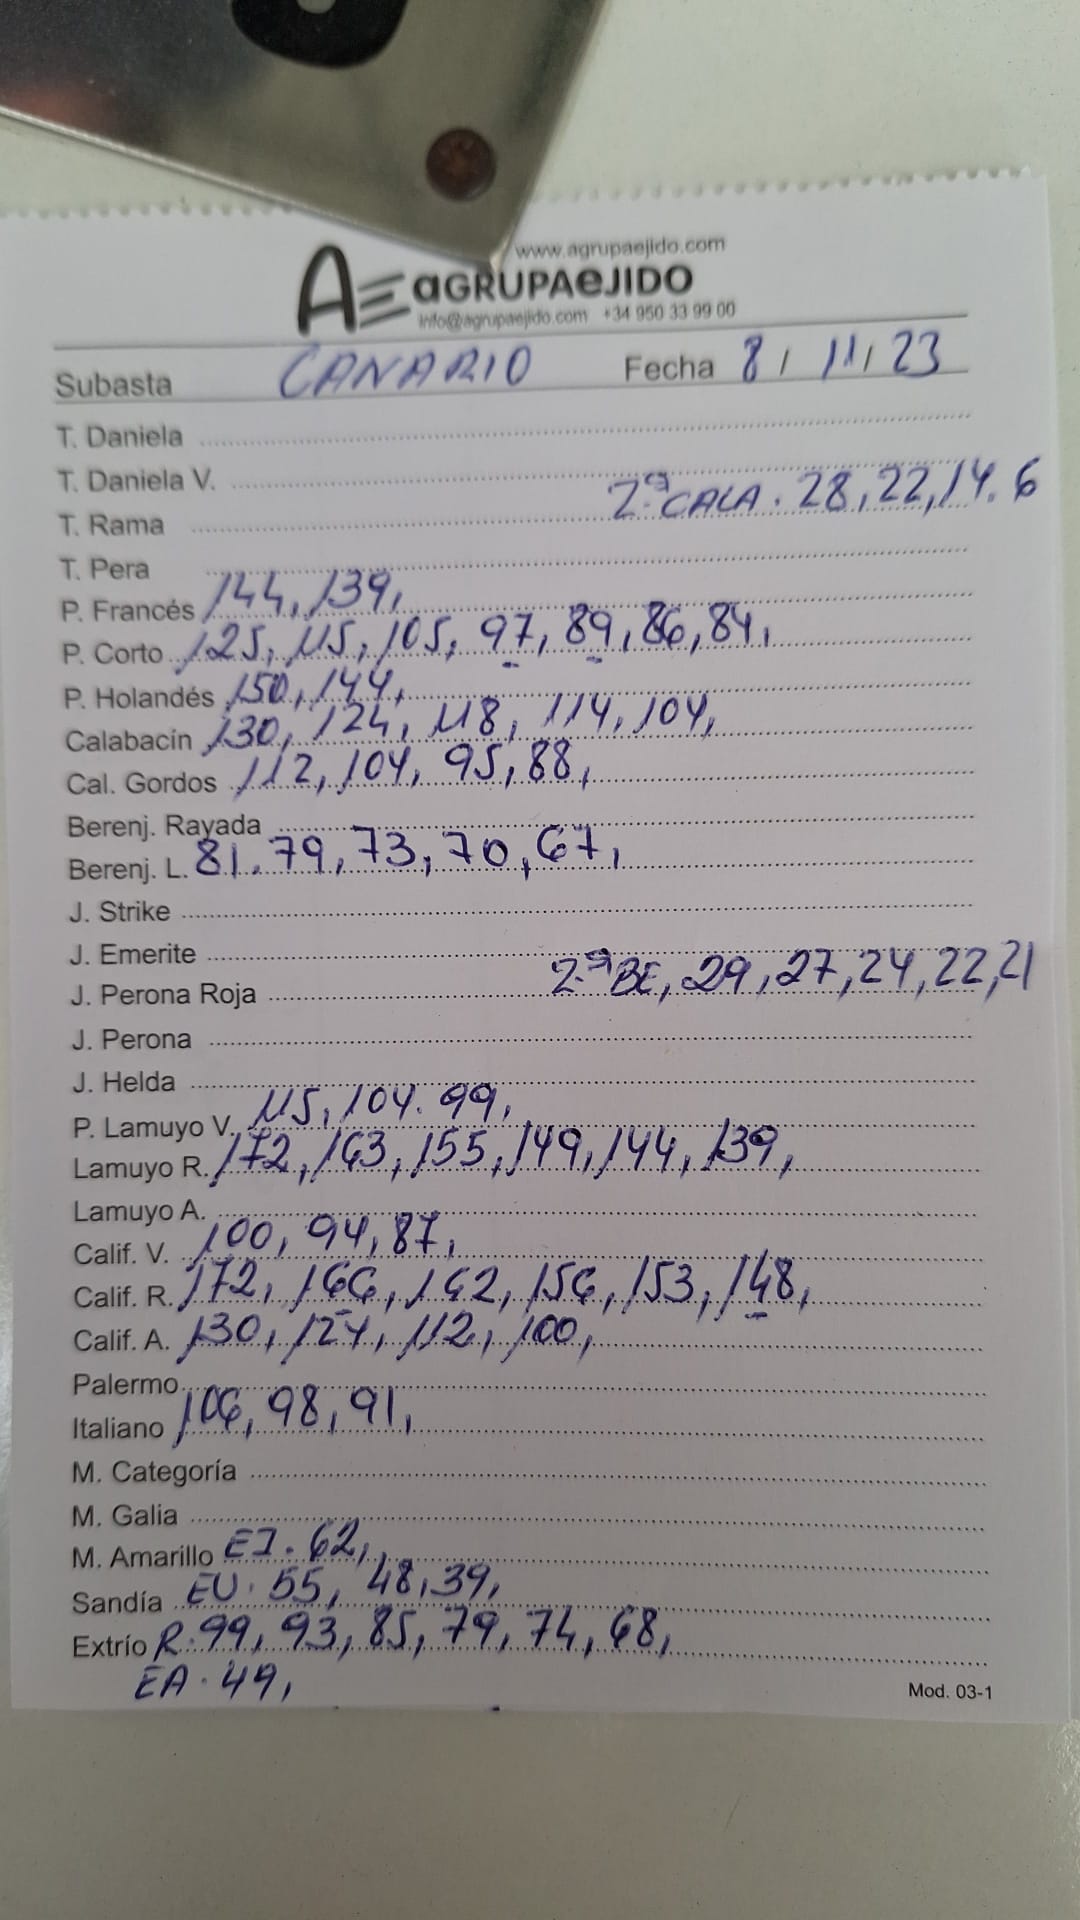 www.agrupaejido.com
AE aGRUPAeJIDO
info@agrupaejido.com +34 950 33 99 00
Subasta CANARIO Fecha 8/11/23
T. Daniela
T. Daniela V.
2ª CALA. 28, 22, 14. 6
T. Rama
T. Pera
P. Francés 144, 139,
P. Corto 125, 115, 105, 97, 89, 86, 84,
P. Holandés 150, 144,
Calabacín 130, 124, 118, 114, 104,
Cal. Gordos 112, 104, 95, 88,
Berenj. Rayada
Berenj. L. 81. 79, 73, 70, 67,
J. Strike
J. Emerite
2ª BE, 29, 27, 24, 22, 21
J. Perona Roja
J. Perona
J. Helda
P. Lamuyo V. 115, 104. 99,
Lamuyo R. 172, 163, 155, 149, 144, 139,
Lamuyo A.
Calif. V. 100, 94, 87,
Calif. R. 172, 166, 162, 156, 153, 148,
Calif. A. 130, 124, 112, 100,
Palermo
Italiano 106, 98, 91,
M. Categoría
M. Galia
M. Amarillo EJ. 62,
Sandía EU. 55, 48, 39,
Extrío R. 99, 93, 85, 79, 74, 68,
EA. 49,
Mod. 03-1